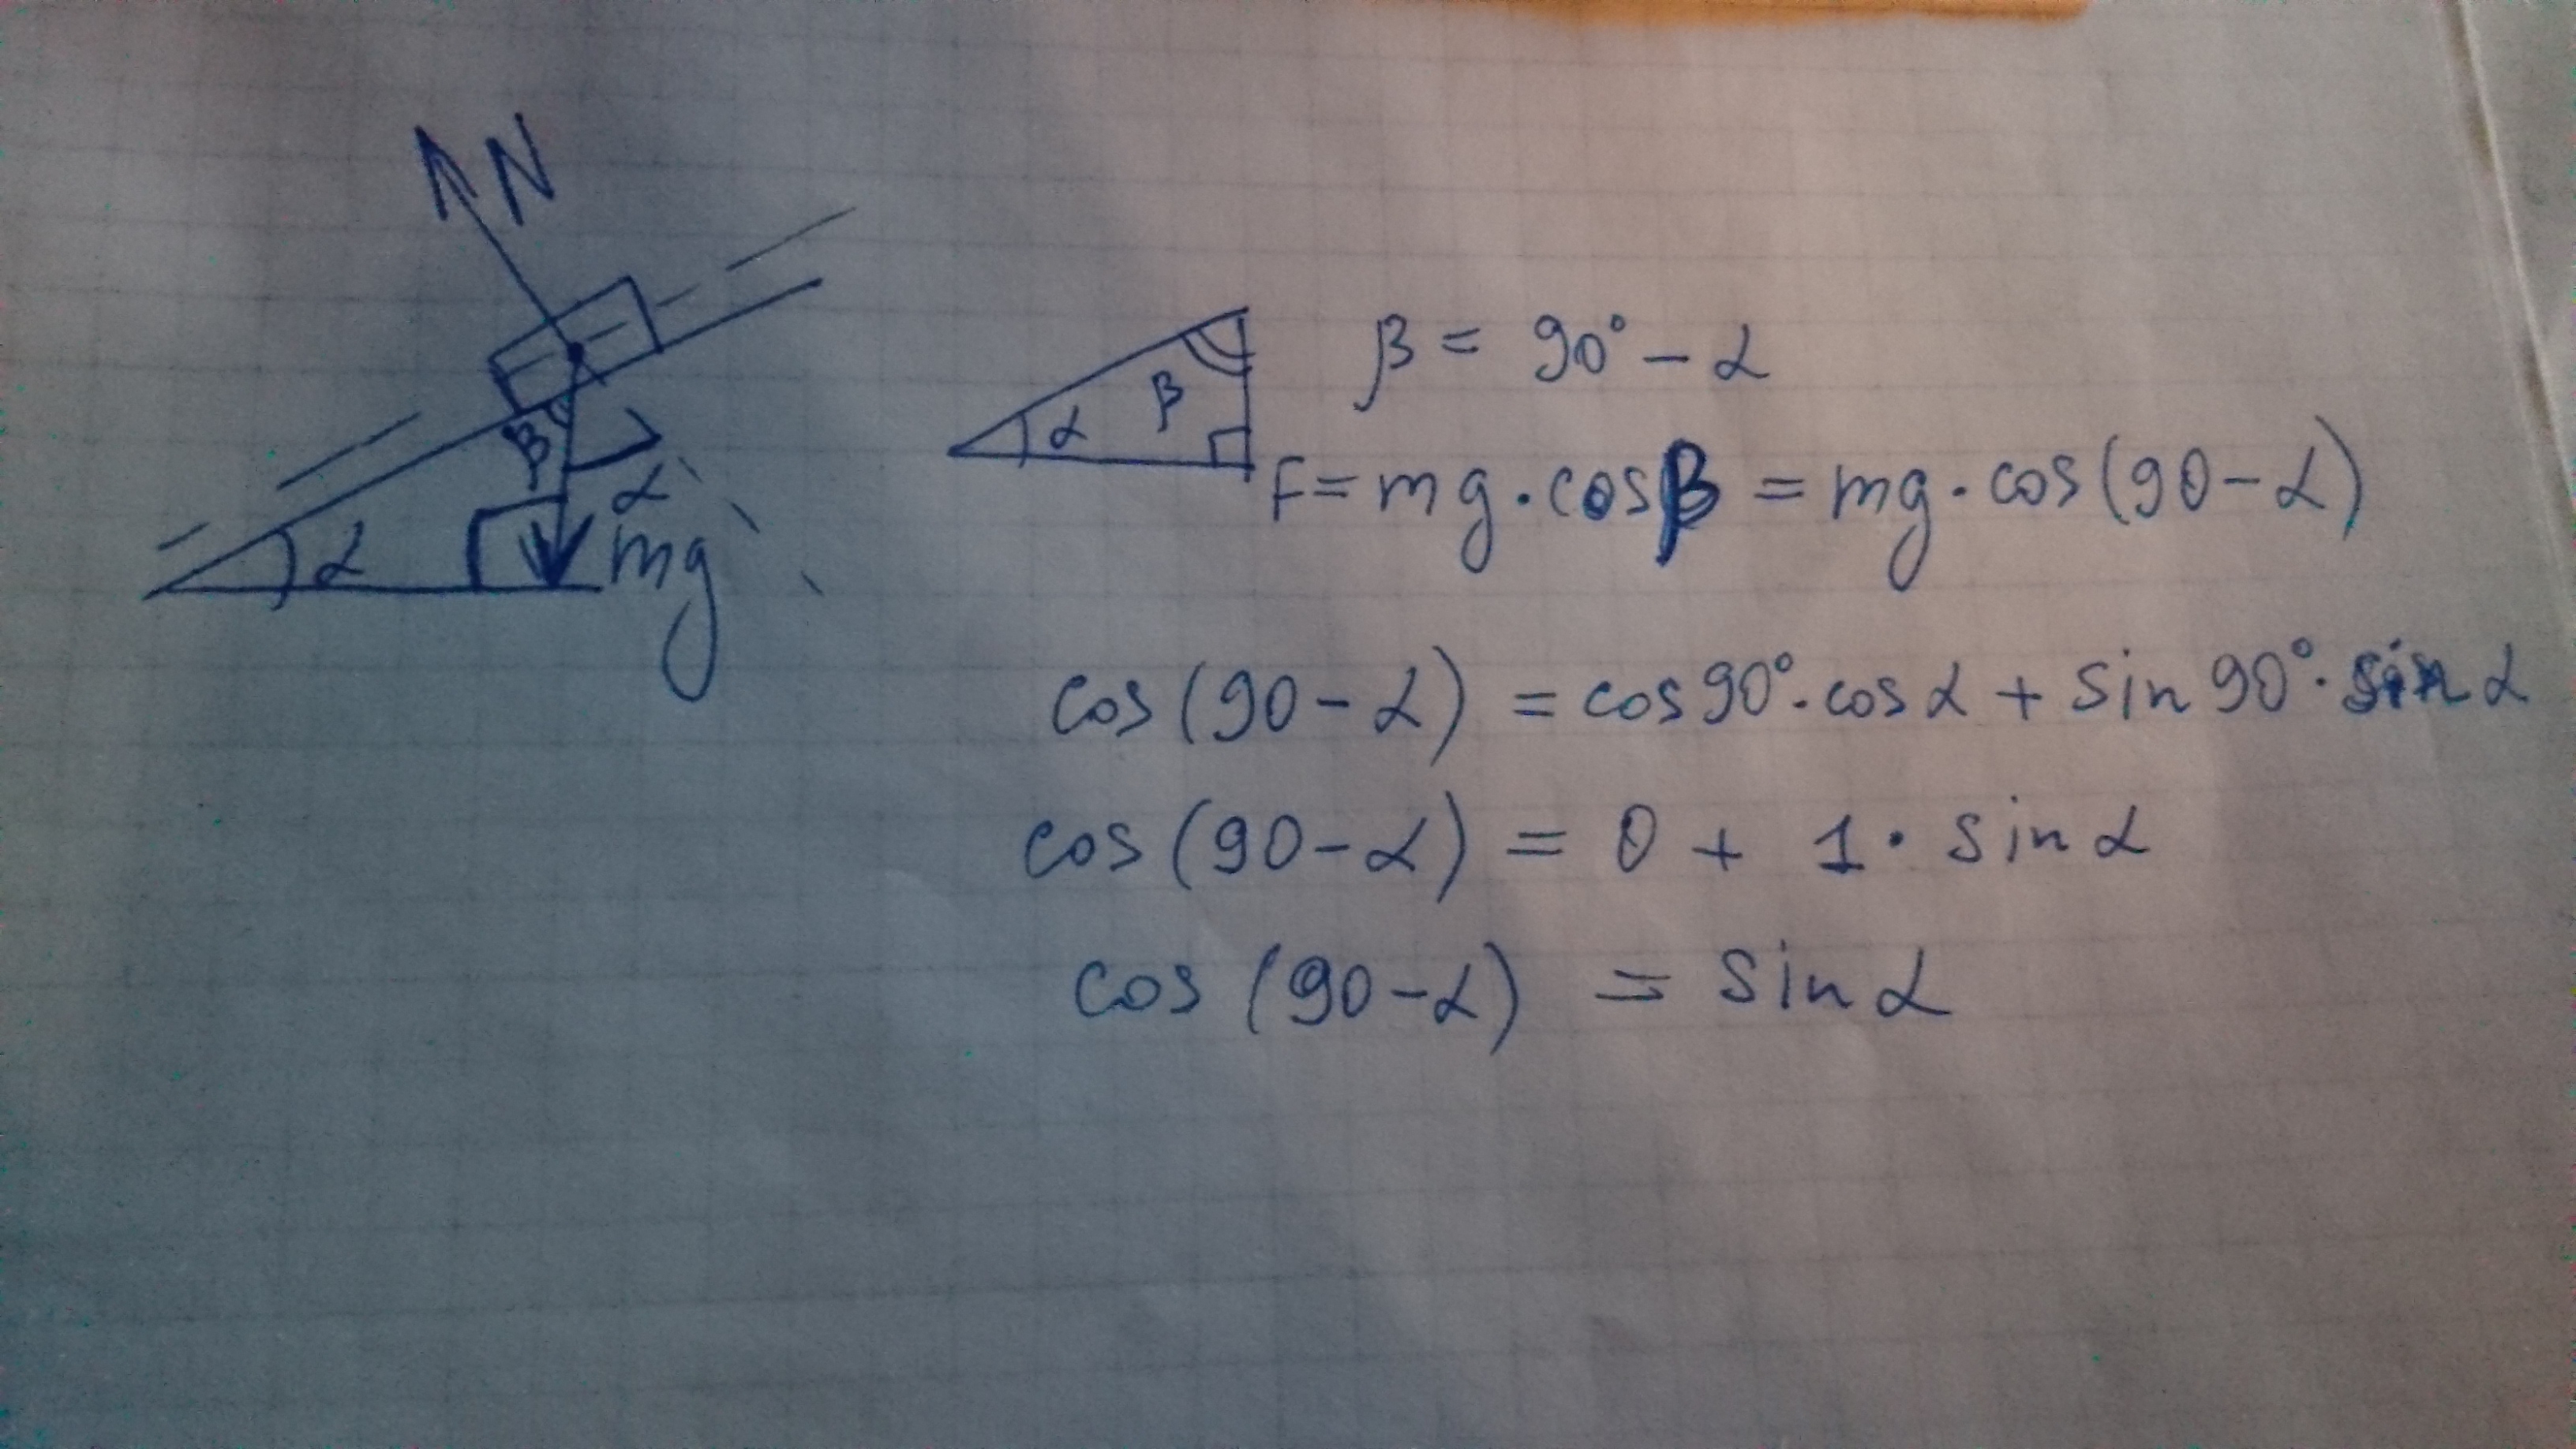 N
β
α
α
mg
α
β
β = 90° - α
F = mg · cosβ = mg · cos(90-α)
cos(90-α) = cos90° · cosα + sin90° · sinα
cos(90-α) = 0 + 1 · sinα
cos(90-α) = sinα